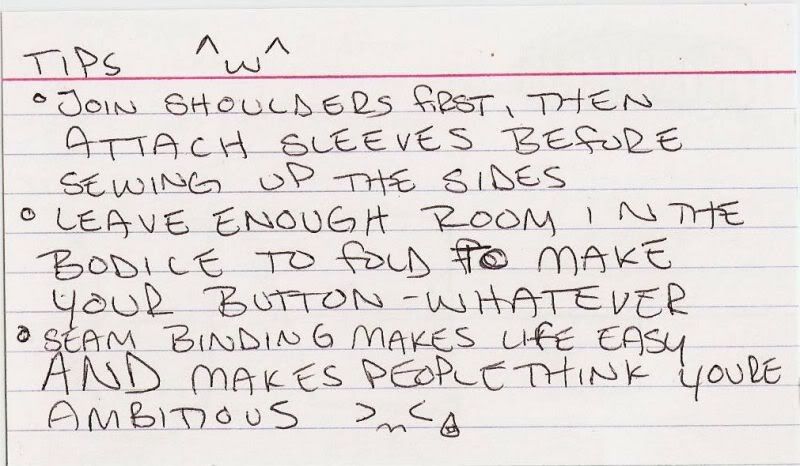 TIPS ^w^
• JOIN SHOULDERS FIRST, THEN
ATTACH SLEEVES BEFORE
SEWING UP THE SIDES
• LEAVE ENOUGH ROOM IN THE
BODICE TO FOLD TO MAKE
YOUR BUTTON-WHATEVER
• SEAM BINDING MAKES LIFE EASY
AND MAKES PEOPLE THINK YOURE
AMBITIOUS >n<